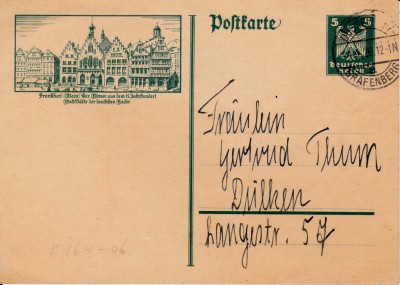 Postkarte
5 5
Deutsches
Reich
12-1N
GRAFENBERG
Frankfurt (Main) Der Römer aus dem 15. Jahrhundert
Wahlstätte der deutschen Kaiser
Fräulein
Gertrud Thum
Dülken
Langestr. 57
P 164-06